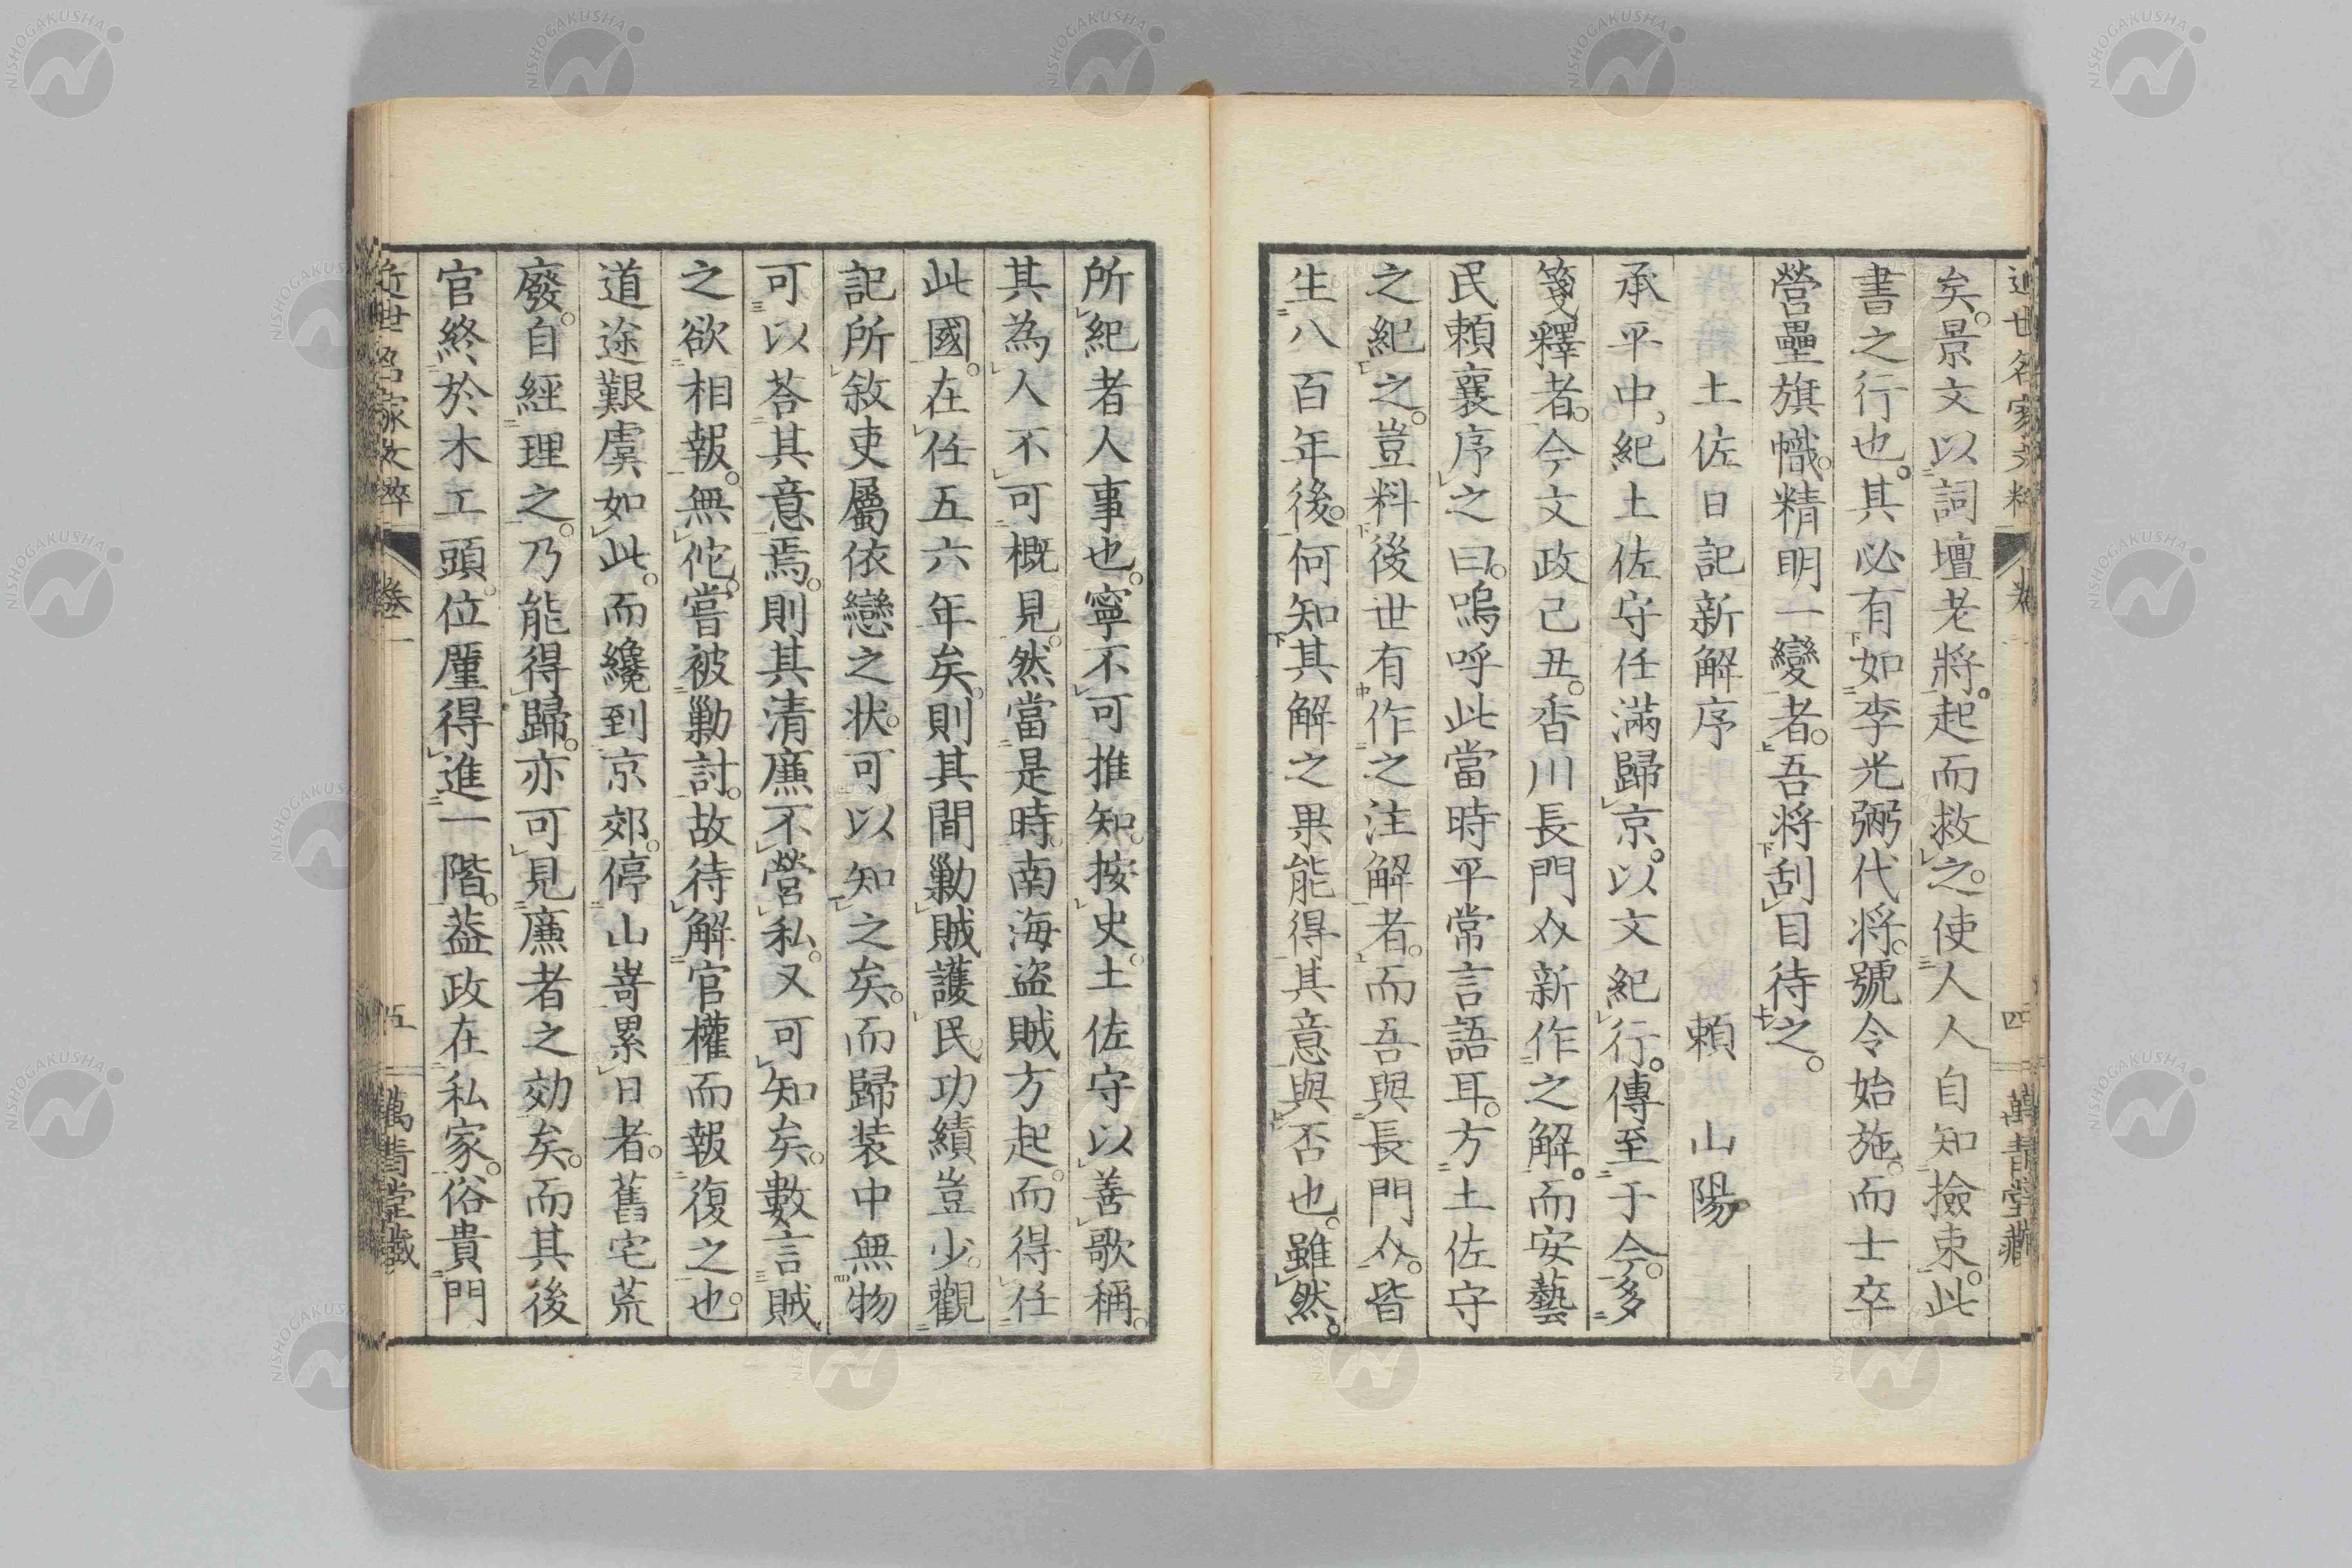 矣。景文以詞壇老將。起而救之。使人人自知撿束。此
書之行也。其必有如李光弼代將。號令始施。而士卒
營壘旗幟。精明一變者。吾將刮目待之。
土佐日記新解序 賴 山陽
承平中。紀土佐守任滿歸京。以文紀行。傳至于今。多
箋釋者。今文政己丑。香川長門介新作之解。而安藝
民賴襄序之曰。嗚呼此當時平常言語耳。方土佐守
之紀之。豈料後世有作之注解者。而吾與長門介。皆
生八百年後。何知其解之果能得其意與否也。雖然。
所紀者人事也。寧不可推知。按史。土佐守以善歌稱。
其為人不可概見。然當是時。南海盗賊方起。而得任
此國。在任五六年矣。則其間勦賊護民功績豈少。觀
記所敘吏屬依戀之状。可以知之矣。而歸装中無物
可以荅其意焉。則其清廉不營私。又可知矣。數言賊
之欲相報。無佗。嘗被勦討。故待解官權而報復之也。
道途艱虞如此。而纔到京郊。停山嵜累日者。舊宅荒
廢。自經理之。乃能得歸。亦可見廉者之効矣。而其後
官終於木工頭。位厪得進一階。葢政在私家。俗貴門
近世名家文粹 卷一 四 萬青堂藏
近世名家文粹 卷一 五 萬青堂藏
NISHOGAKUSHA